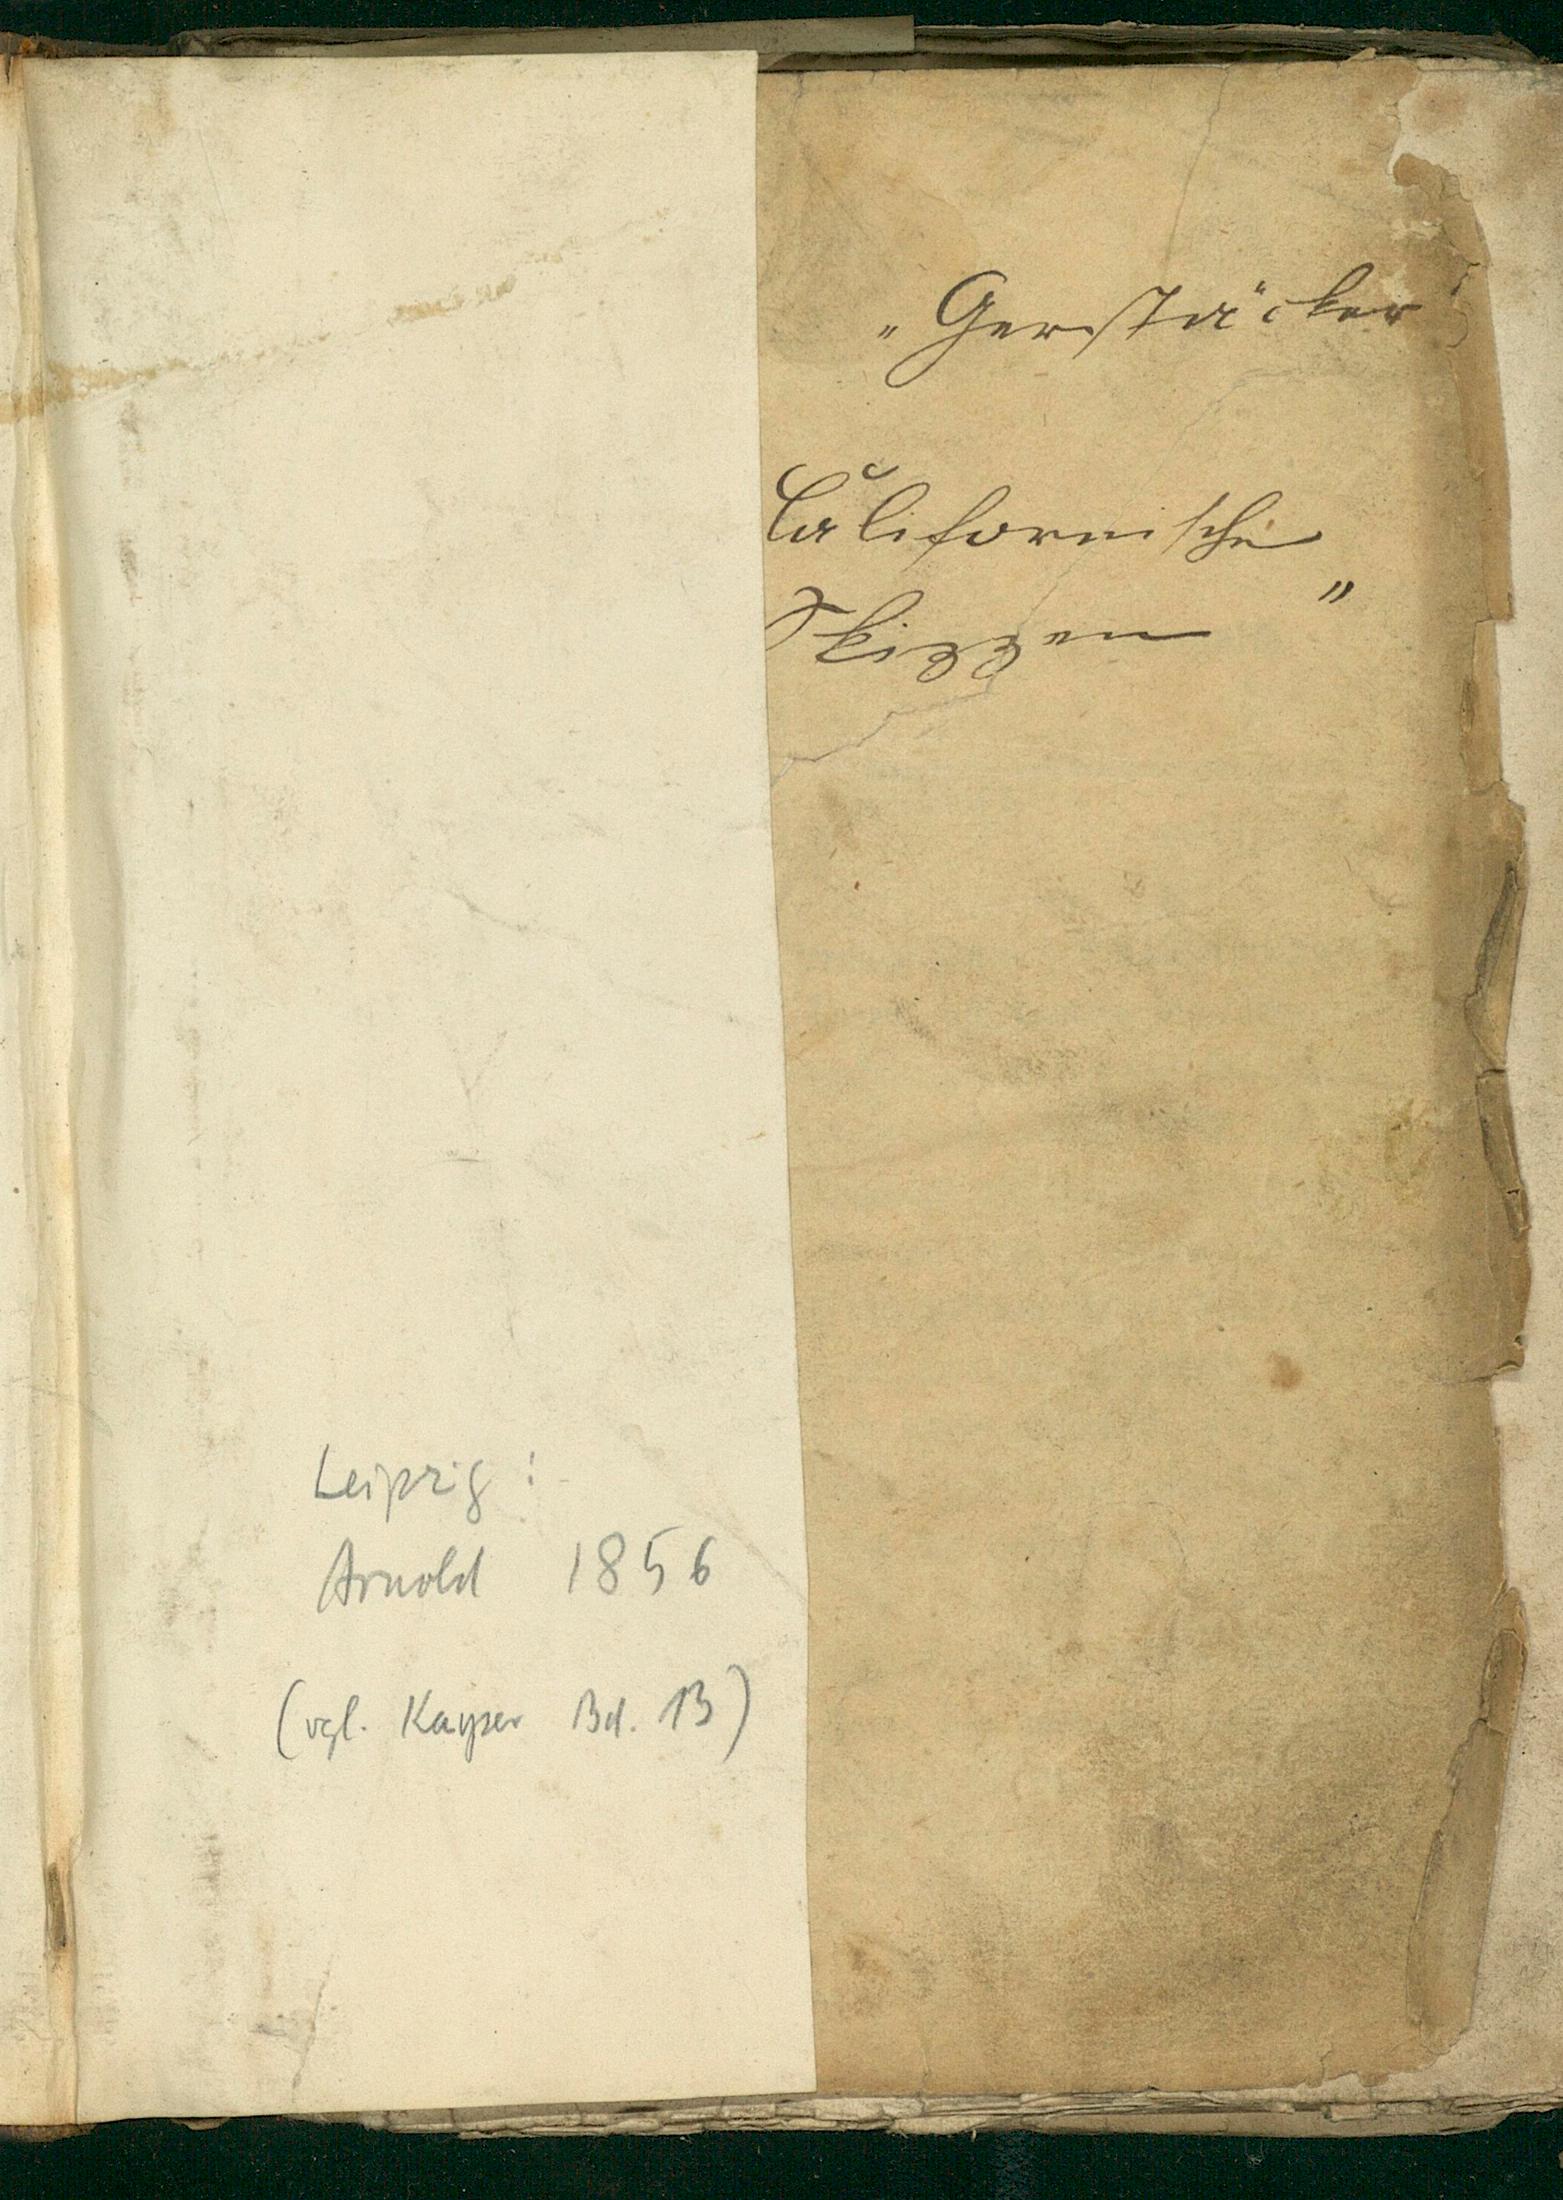 „Gerstäcker
Californische
Skizzen"
Leipzig:
Arnold 1856
(vgl. Kayser Bd. 13)